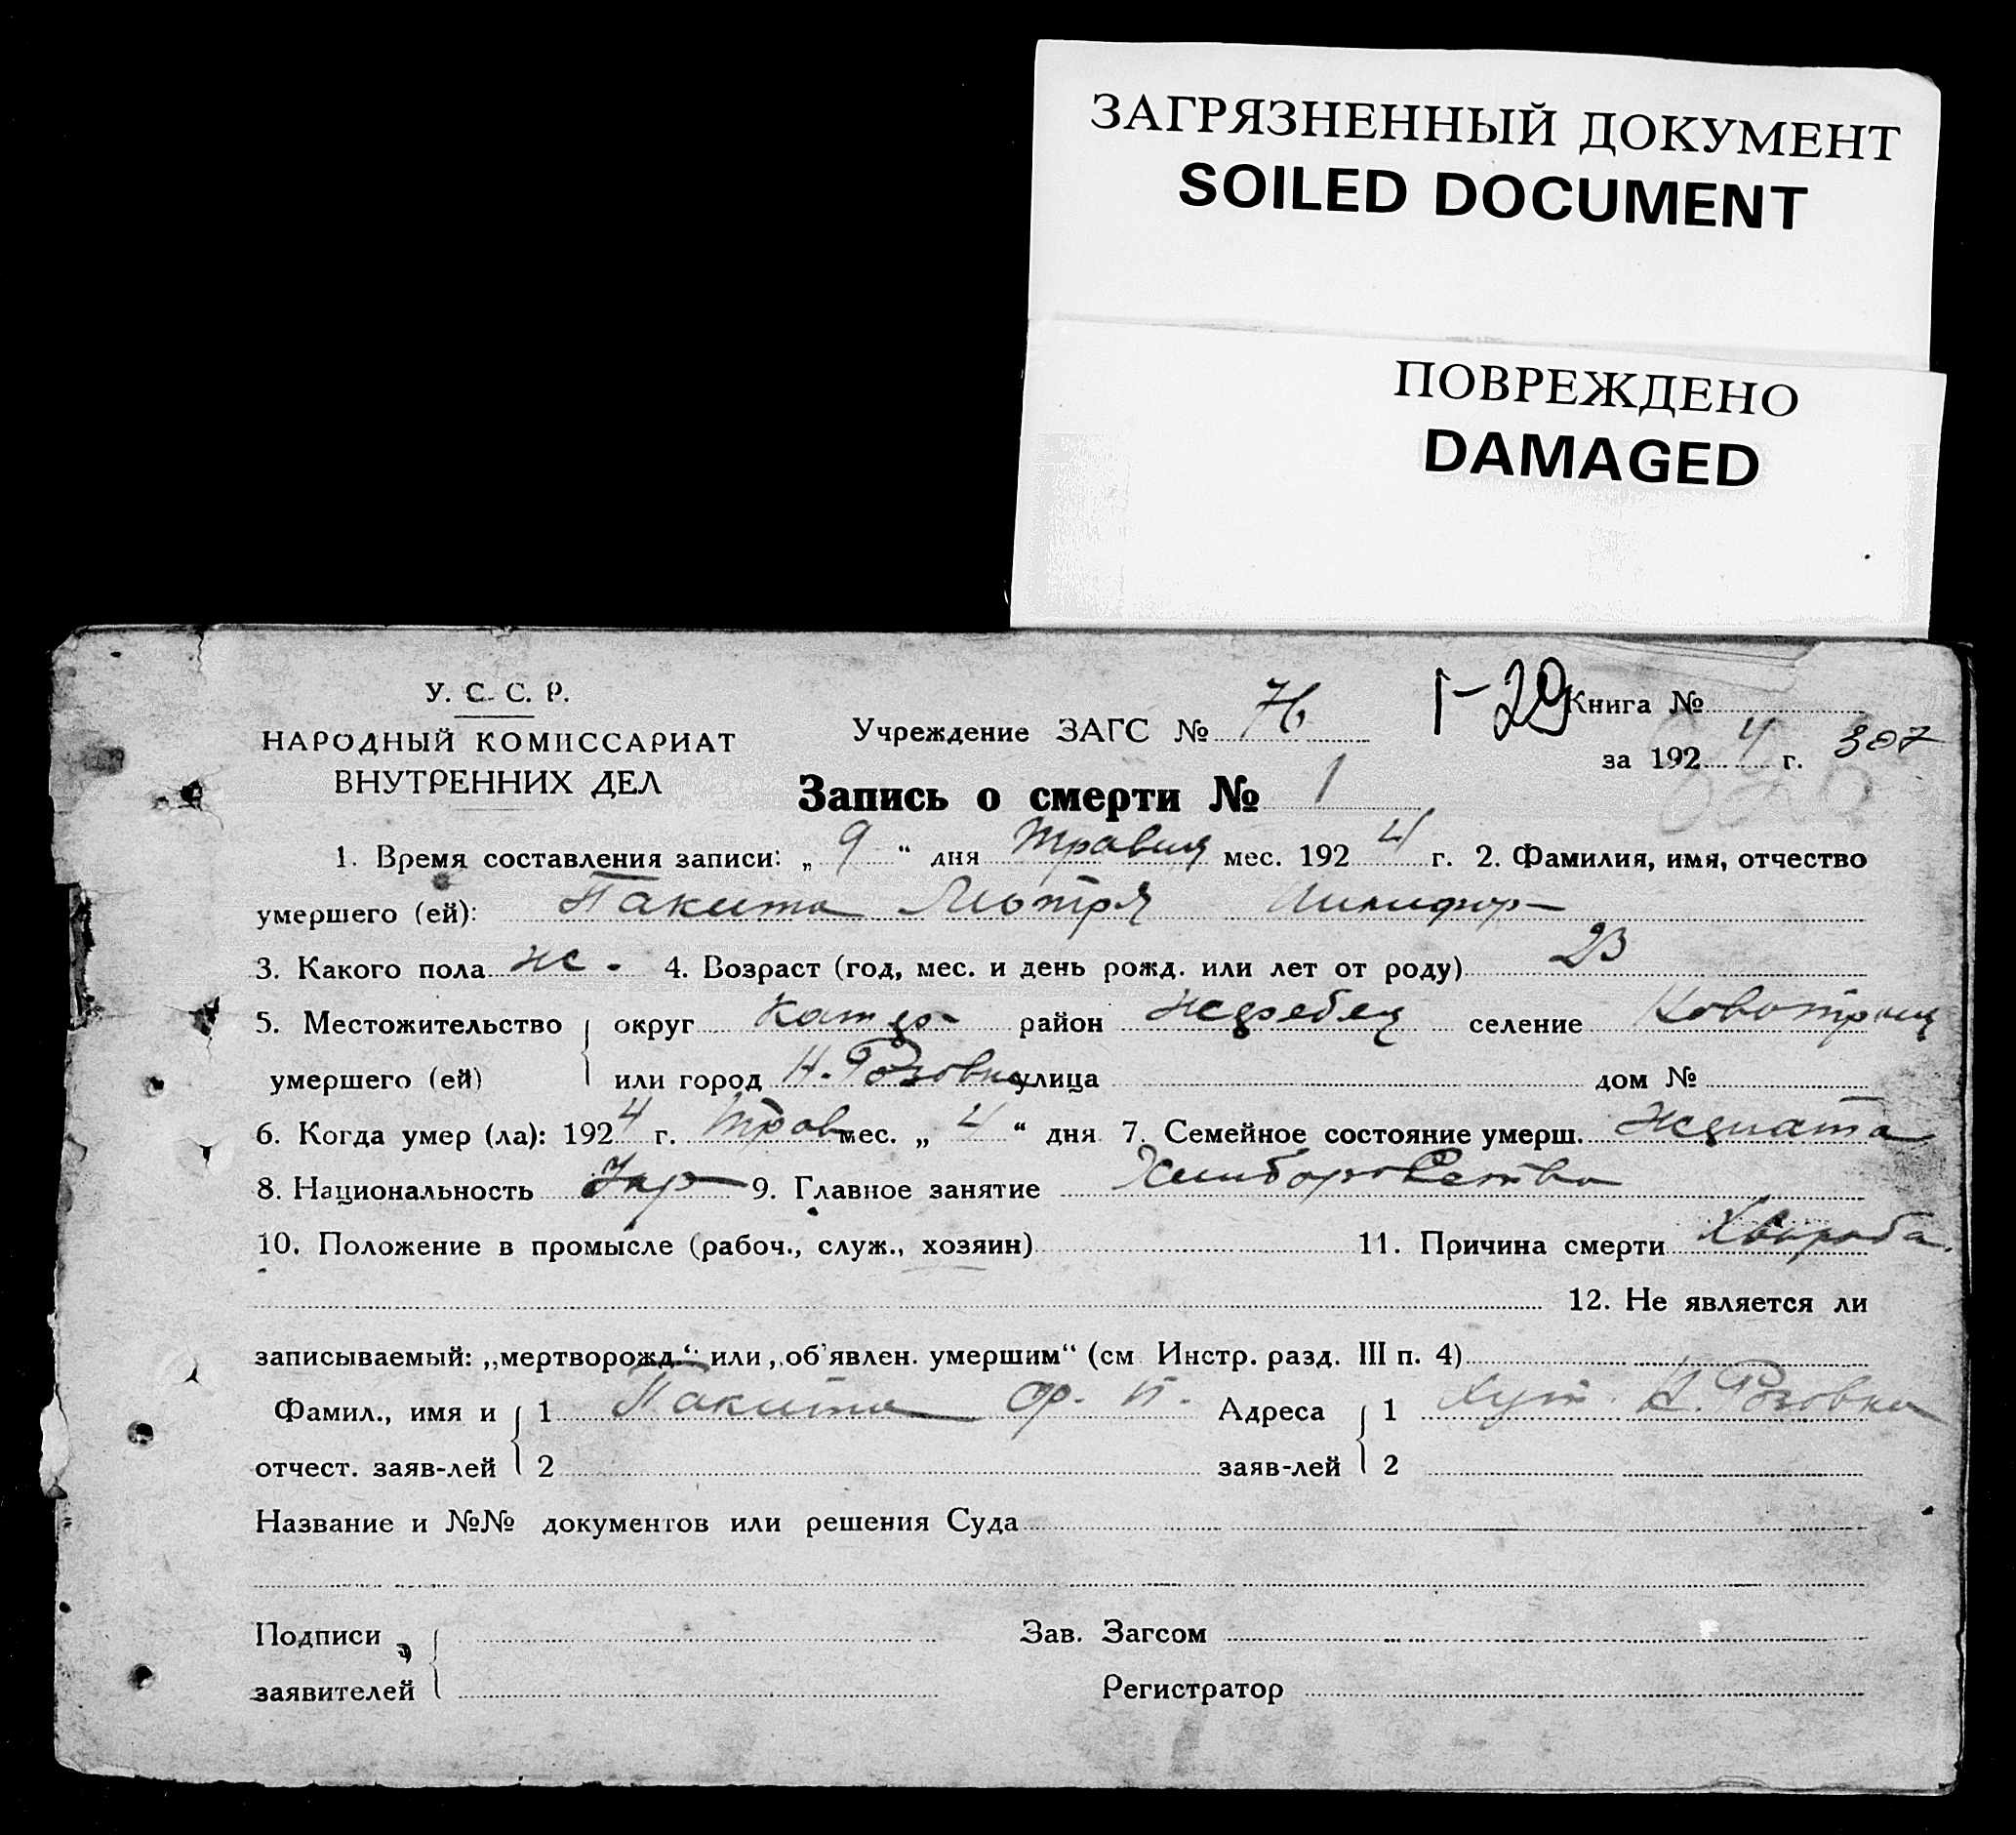 ЗАГРЯЗНЕННЫЙ ДОКУМЕНТ
SOILED DOCUMENT
ПОВРЕЖДЕНО
DAMAGED
У. С. С. Р.
НАРОДНЫЙ КОМИССАРИАТ
ВНУТРЕННИХ ДЕЛ
Учреждение ЗАГС № 76
1-29 Книга №
за 1924 г. 307
Запись о смерти № 1
1. Время составления записи: „ 9 “ дня Травня мес. 1924 г. 2. Фамилия, имя, отчество
умершего (ей): Пакита Мотря
3. Какого пола ж. 4. Возраст (год, мес. и день рожд. или лет от роду) 23
5. Местожительство округ район Жеребец селение Новотроиц
умершего (ей) или город Н. Розовка улица дом №
6. Когда умер (ла): 1924 г. Трав мес. „ 4 “ дня 7. Семейное состояние умерш. Жената
8. Национальность Укр 9. Главное занятие Хлиборобство
10. Положение в промысле (рабоч., служ., хозяин) 11. Причина смерти Хвороба.
12. Не является ли
записываемый: „мертворожд.“ или „об'явлен. умершим“ (см. Инстр. разд. III п. 4)
Фамил., имя и 1 Пакита Ф. П. Адреса 1 Хут. Н. Розовка
отчест. заяв-лей 2 заяв-лей 2
Название и №№ документов или решения Суда
Подписи Зав. Загсом
заявителей Регистратор